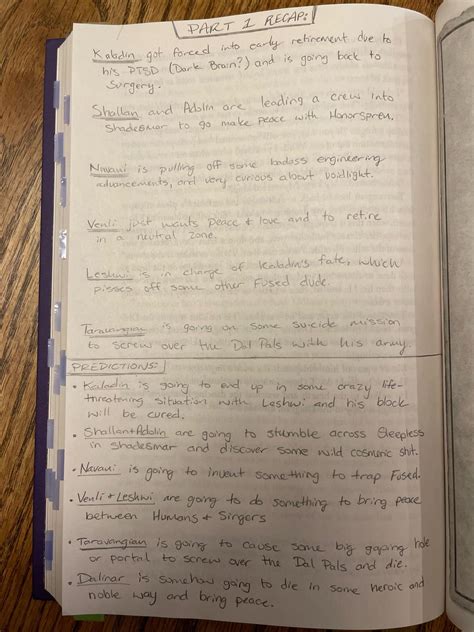 PART 1 RECAP:
Kaladin got forced into early retirement due to
his PTSD (Dark Brain?) and is going back to
Surgery.
Shallan and Adolin are leading a crew into
Shadesmar to go make peace with Honorspren.
Navani is pulling off some badass engineering
advancements, and very curious about voidlight.
Venli just wants peace & love and to retire
in a neutral zone.
Leshwi is in charge of Kaladin's fate, which
pisses off some other Fused dude.
Taravangian is going on some suicide mission
to screw over the Dal Pals with his army.
PREDICTIONS:
• Kaladin is going to end up in some crazy life-
threatening situation with Leshwi and his block
will be cured.
• Shallan + Adolin are going to stumble across Sleepless
in Shadesmar and discover some wild cosmeric sht.
• Navani is going to invent something to trap Fused.
• Venli + Leshwi are going to do something to bring peace
between Humans + Singers
• Taravangian is going to cause some big gaping hole
or portal to screw over the Dal Pals and die.
• Dalinar is somehow going to die in some heroic and
noble way and bring peace.